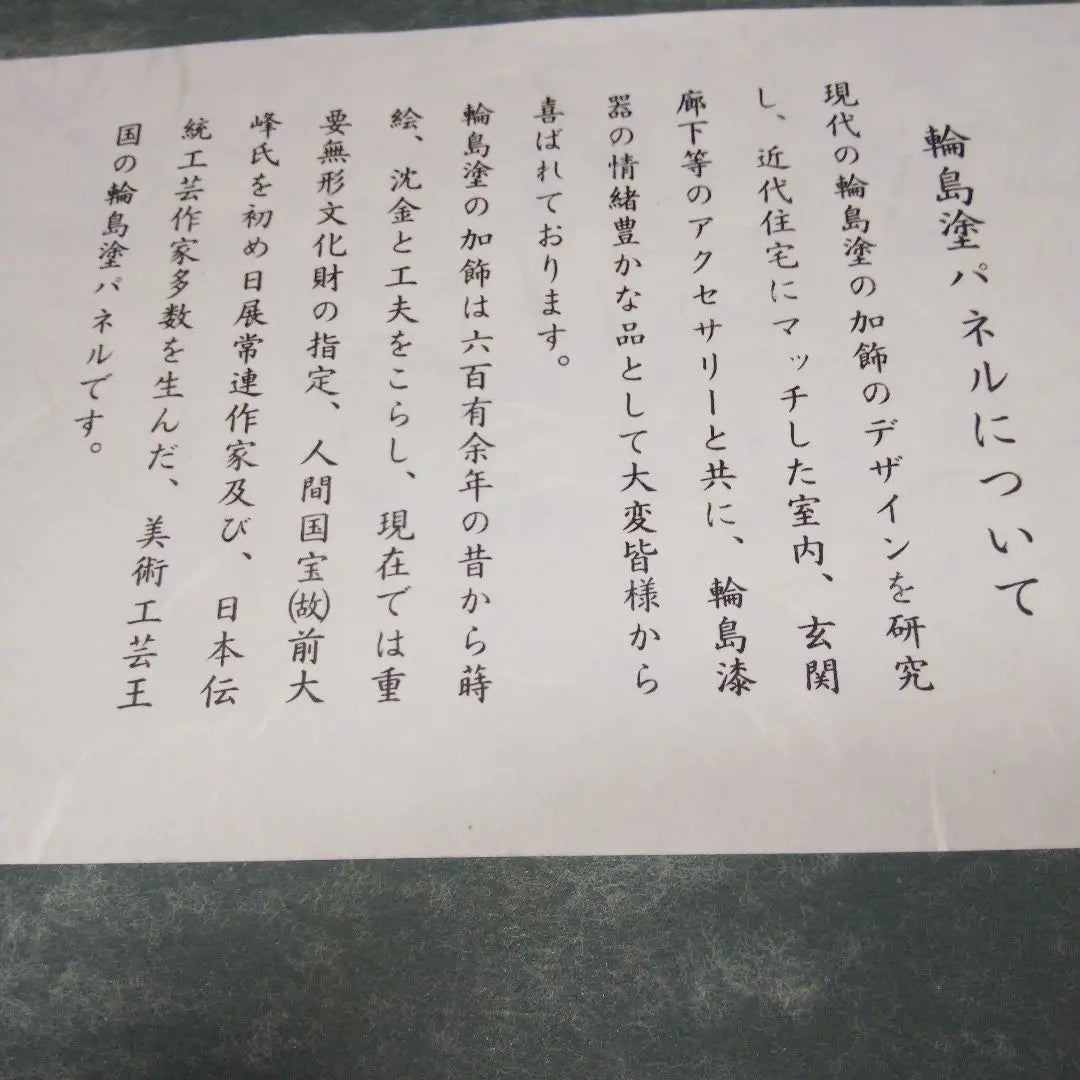 輪島塗パネルについて
現代の輪島塗の加飾のデザインを研究
し、近代住宅にマッチした室内、玄関
廊下等のアクセサリーと共に、輪島漆
器の情緒豊かな品として大変皆様から
喜ばれております。
輪島塗の加飾は六百有余年の昔から蒔
絵、沈金と工夫をこらし、現在では重
要無形文化財の指定、人間国宝㈲前大
峰氏を初め日展常連作家及び、日本伝
統工芸作家多数を生んだ、美術工芸王
国の輪島塗パネルです。